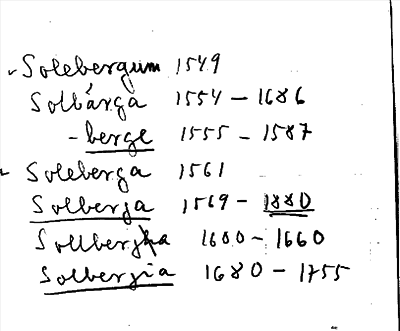 Solebergum 1549
Solbárga 1554 – 1686
- berge 1555 – 1587
Soleberga 1561
Solberja 1569 – 1880
Sollberga 1600 – 1660
Solbergia 1680 – 1755